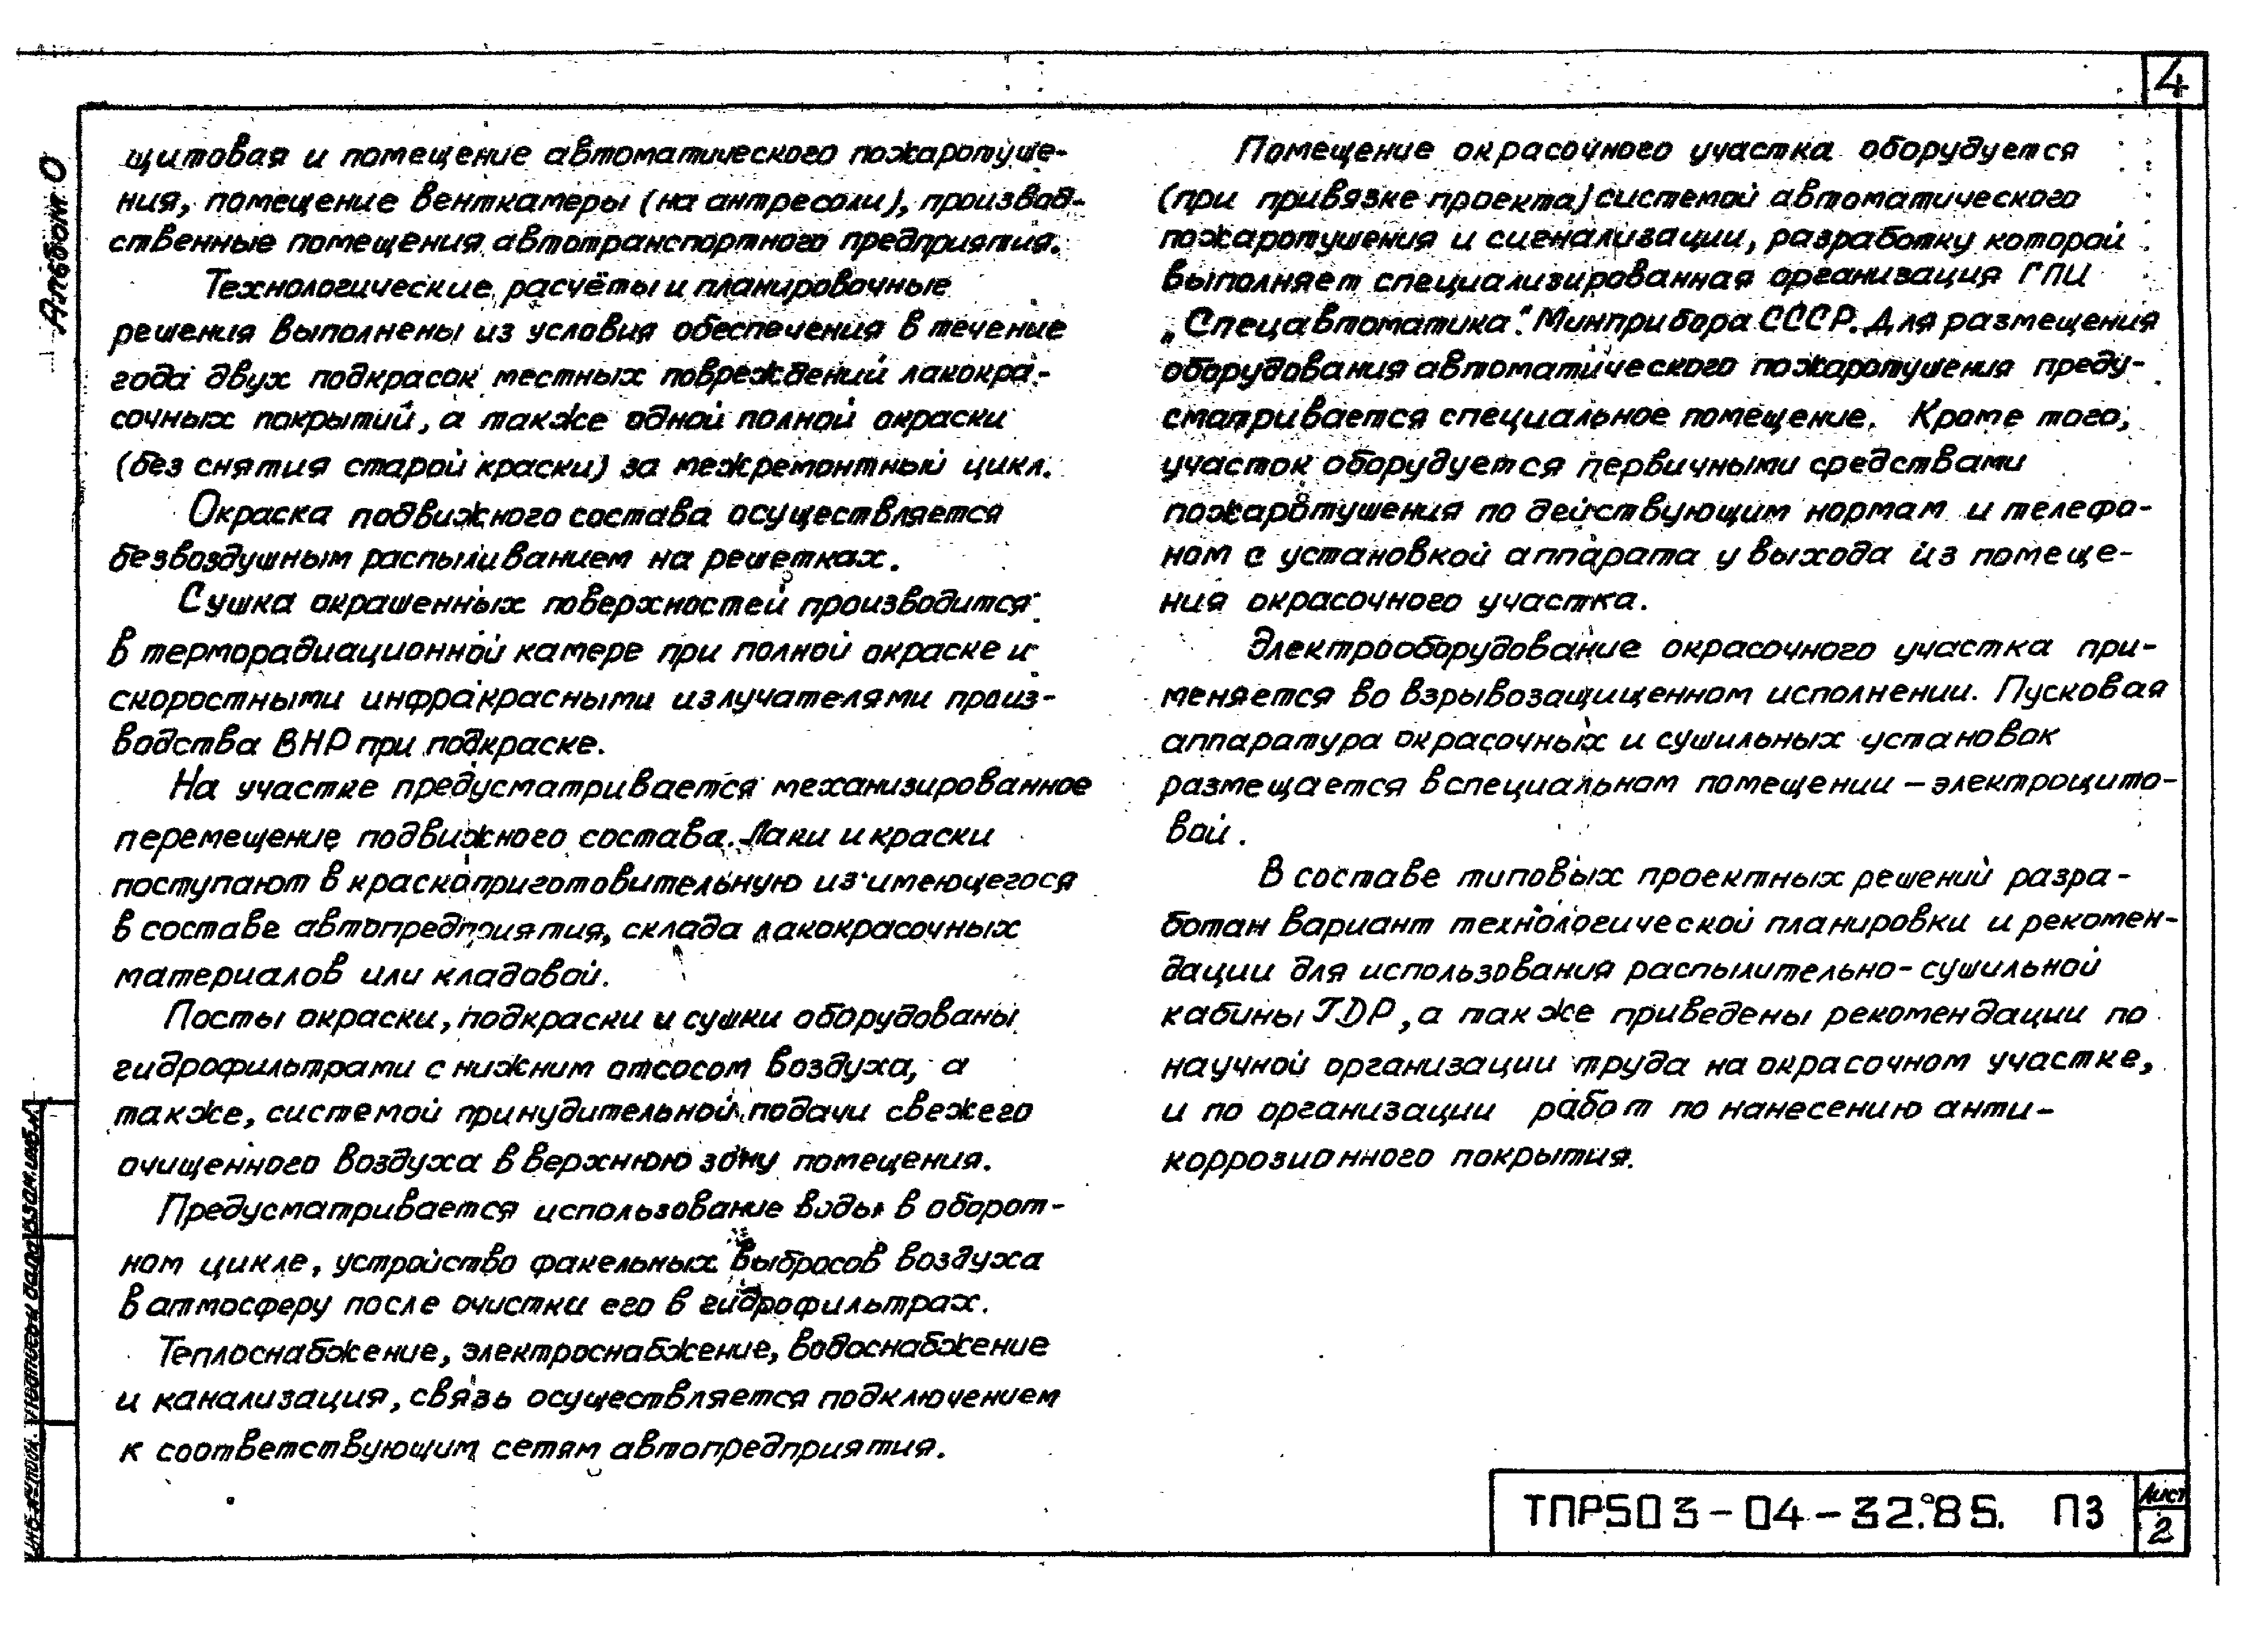 4
Альбом 0
щитовая и помещение автоматического пожаротуше-
ния, помещение венткамеры (на антресоли), производ-
ственные помещения автотранспортного предприятия.
Технологические расчёты и планировочные
решения выполнены из условия обеспечения в течение
года двух подкрасок местных повреждений лакокра-
сочных покрытий, а также одной полной окраски
(без снятия старой краски) за межремонтный цикл.
Окраска подвижного состава осуществляется
безвоздушным распыливанием на решетках.
Сушка окрашенных поверхностей производится
в терморадиационной камере при полной окраске и
скоростными инфракрасными излучателями произ-
водства ВНР при подкраске.
На участке предусматривается механизированное
перемещение подвижного состава. Лаки и краски
поступают в краскоприготовительную из имеющегося
в составе автопредприятия, склада лакокрасочных
материалов или кладовой.
Посты окраски, подкраски и сушки оборудованы
гидрофильтрами с нижним отсосом воздуха, а
также, системой принудительной подачи свежего
очищенного воздуха в верхнюю зону помещения.
Предусматривается использование воды в оборот-
ном цикле, устройство факельных выбросов воздуха
в атмосферу после очистки его в гидрофильтрах.
Теплоснабжение, электроснабжение, водоснабжение
и канализация, связь осуществляется подключением
к соответствующим сетям автопредприятия.
Помещение окрасочного участка оборудуется
(при привязке проекта) системой автоматического
пожаротушения и сигнализации, разработку которой
выполняет специализированная организация ГПИ
„Спецавтоматика". Минприбора СССР. Для размещения
оборудования автоматического пожаротушения преду-
сматривается специальное помещение. Кроме того,
участок оборудуется первичными средствами
пожаротушения по действующим нормам и телефо-
ном с установкой аппарата у выхода из помеще-
ния окрасочного участка.
Электрооборудование окрасочного участка при-
меняется во взрывозащищенном исполнении. Пусковая
аппаратура окрасочных и сушильных установок
размещается в специальном помещении – электрощито-
вой.
В составе типовых проектных решений разра-
ботан вариант технологической планировки и рекомен-
дации для использования распылительно-сушильной
кабины ГДР, а также приведены рекомендации по
научной организации труда на окрасочном участке,
и по организации работ по нанесению анти-
коррозионного покрытия.
Инв. № подл. Подпись и дата Взам. инв. №
ТПР503-04-32.85. ПЗ
Лист
2